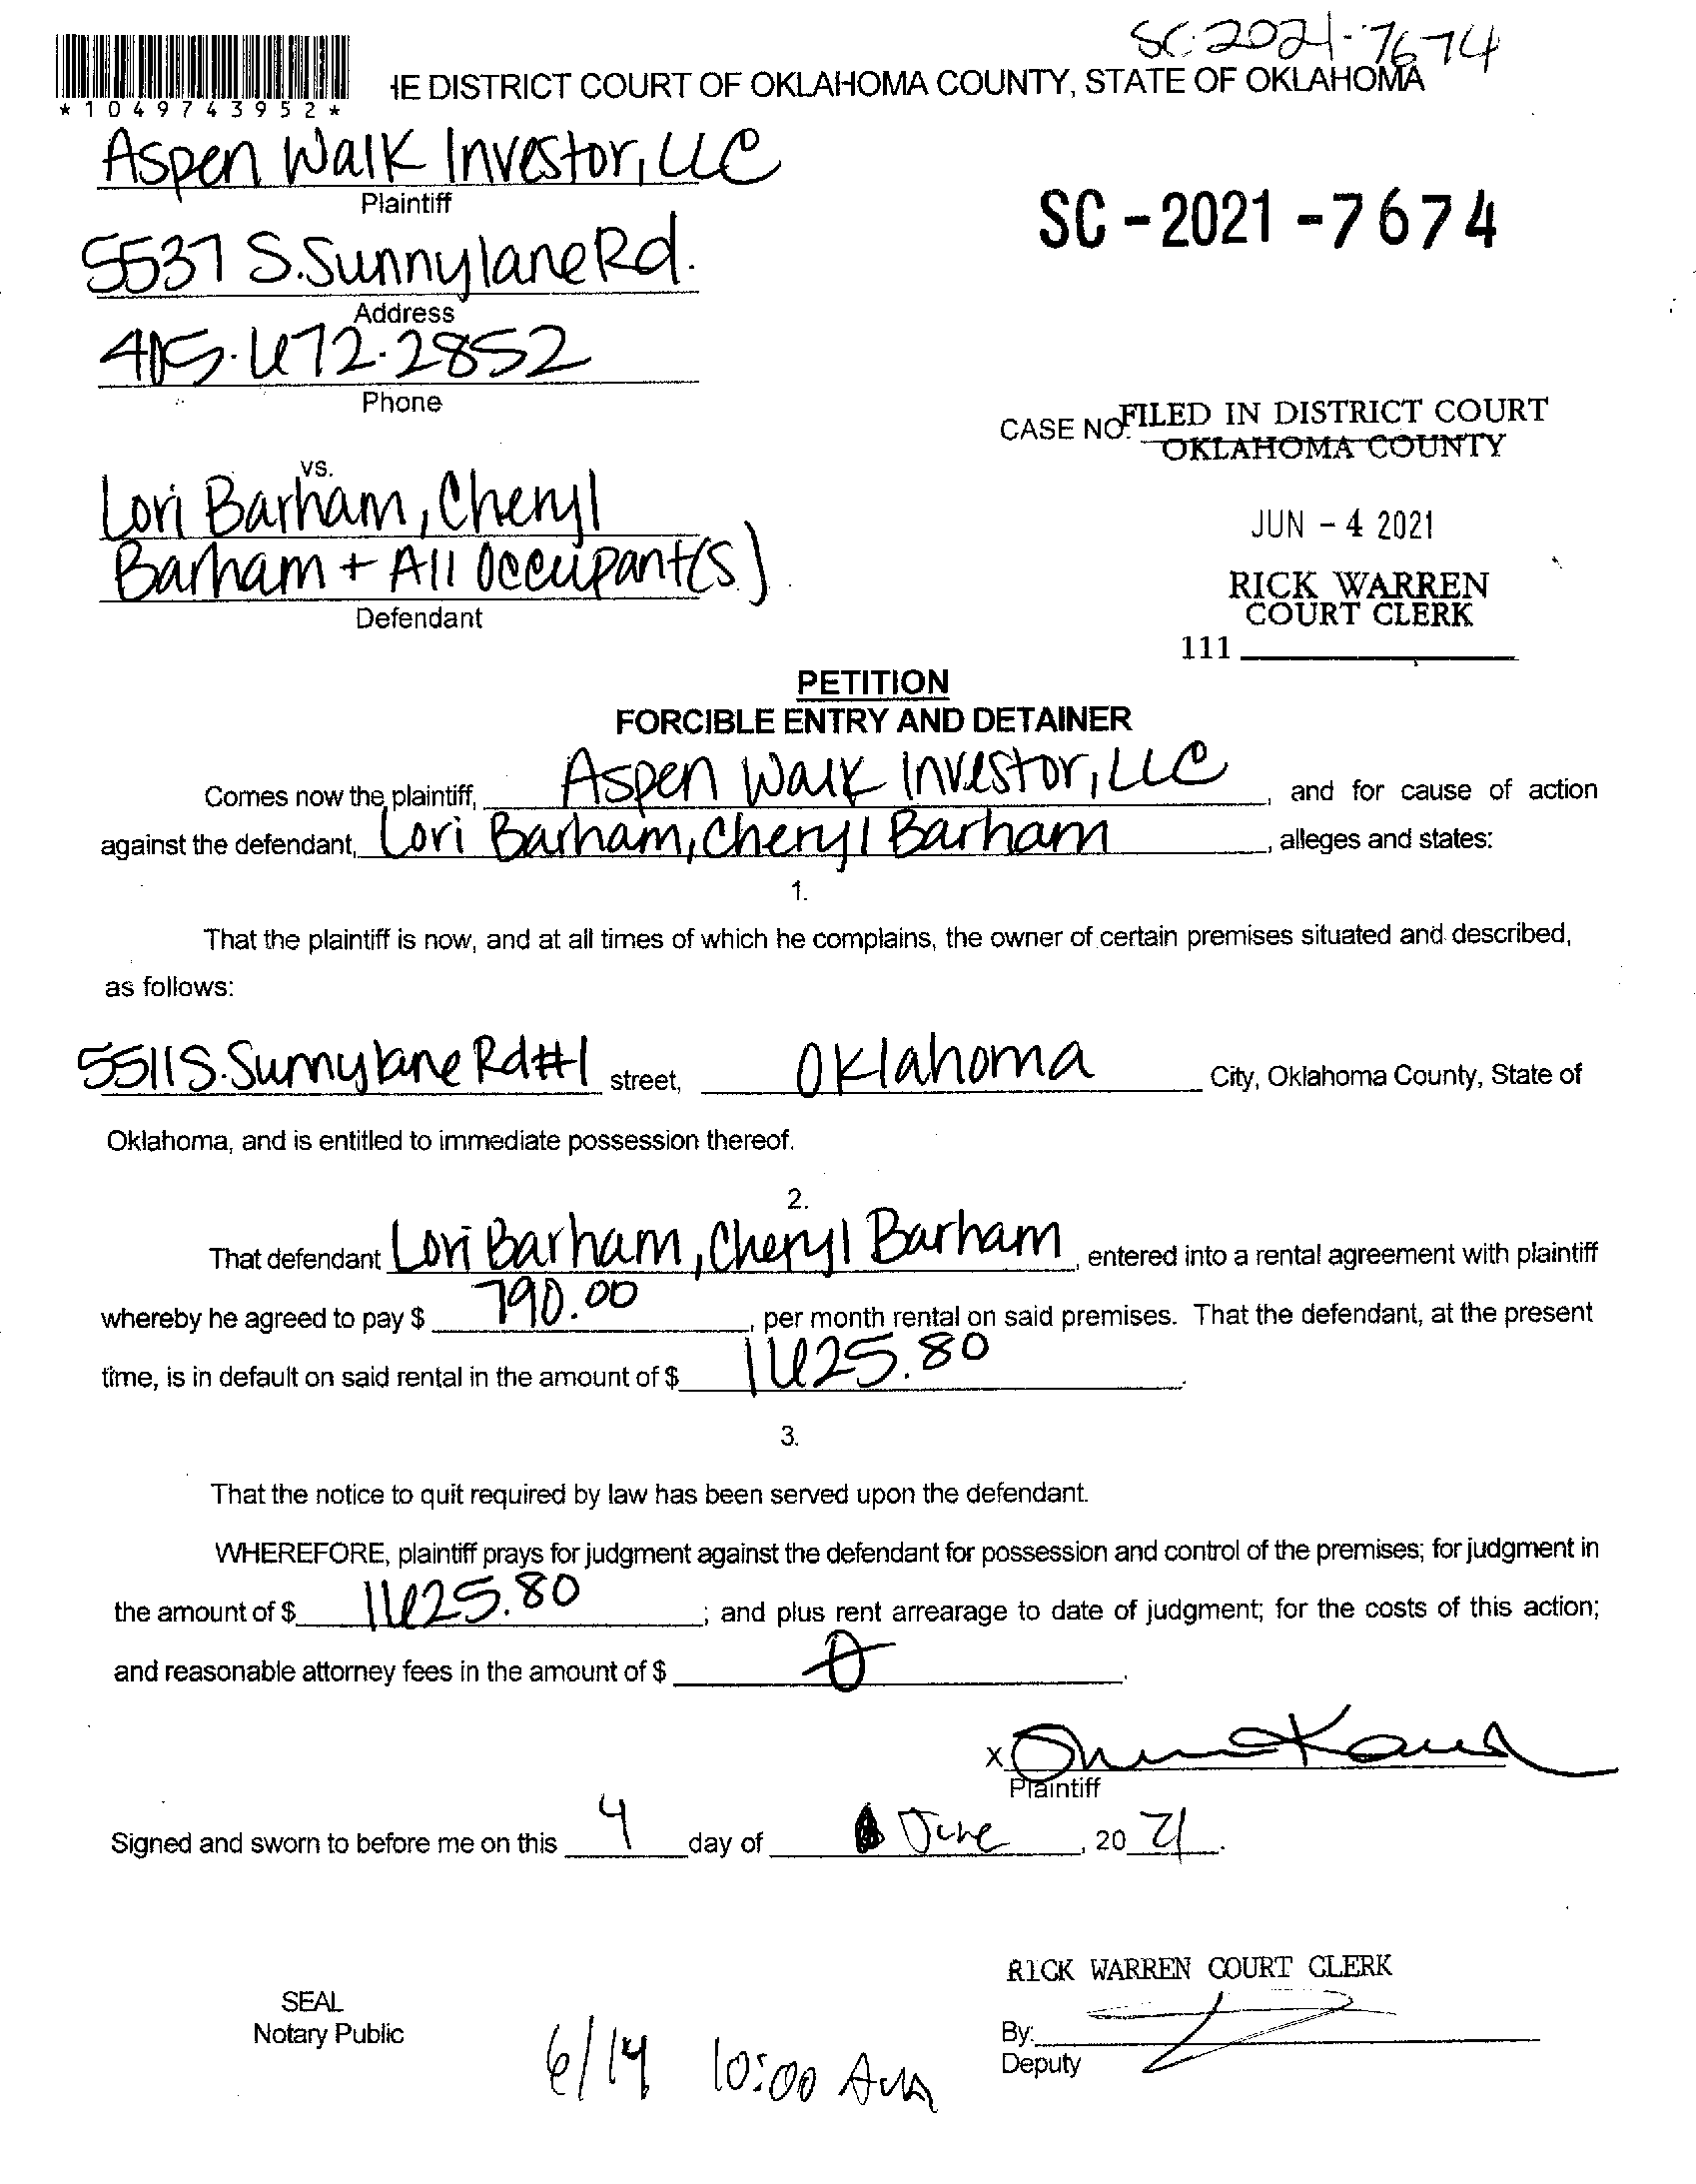 SC-2021-7674
*1049743952*
HE DISTRICT COURT OF OKLAHOMA COUNTY, STATE OF OKLAHOMA
Aspen Walk Investor, LLC
Plaintiff
SC-2021-7674
5537 S. Sunnylane Rd.
Address
405.672.2852
Phone
CASE NO. FILED IN DISTRICT COURT
OKLAHOMA COUNTY
vs.
Lori Barham, Cheryl
JUN - 4 2021
Barham + All Occupant(s)
Defendant
RICK WARREN
COURT CLERK
111
PETITION
FORCIBLE ENTRY AND DETAINER
Comes now the plaintiff, Aspen Walk Investor, LLC, and for cause of action
against the defendant, Lori Barham, Cheryl Barham, alleges and states:
1.
That the plaintiff is now, and at all times of which he complains, the owner of certain premises situated and described,
as follows:
5511 S. Sunnylane Rd #1 street, Oklahoma City, Oklahoma County, State of
Oklahoma, and is entitled to immediate possession thereof.
2.
That defendant Lori Barham, Cheryl Barham, entered into a rental agreement with plaintiff
whereby he agreed to pay $ 790.00, per month rental on said premises. That the defendant, at the present
time, is in default on said rental in the amount of $ 1625.80.
3.
That the notice to quit required by law has been served upon the defendant.
WHEREFORE, plaintiff prays for judgment against the defendant for possession and control of the premises; for judgment in
the amount of $ 1625.80; and plus rent arrearage to date of judgment; for the costs of this action;
and reasonable attorney fees in the amount of $ 0.
X
Plaintiff
Signed and sworn to before me on this 4 day of June, 2021.
RICK WARREN COURT CLERK
SEAL
Notary Public
By:
Deputy
6/14 10:00 AM